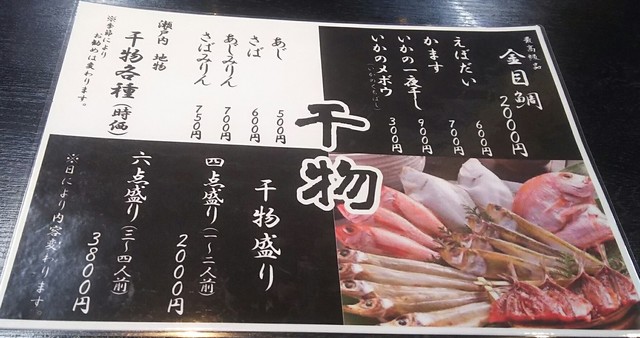 干物
最高級品
金目鯛 2000円
えぼだい 600円
かます 700円
いかの一夜干し 900円
いかのメボウ 300円
(いかのくちばし)
あじ 500円
さば 600円
あじみりん 700円
さばみりん 750円
瀬戸内 地物
干物各種(時価)
※季節により
お勧めは変わります。
干物盛り
四点盛り(一~二人前) 2000円
六点盛り(三~四人前) 3800円
※日により内容変わります。